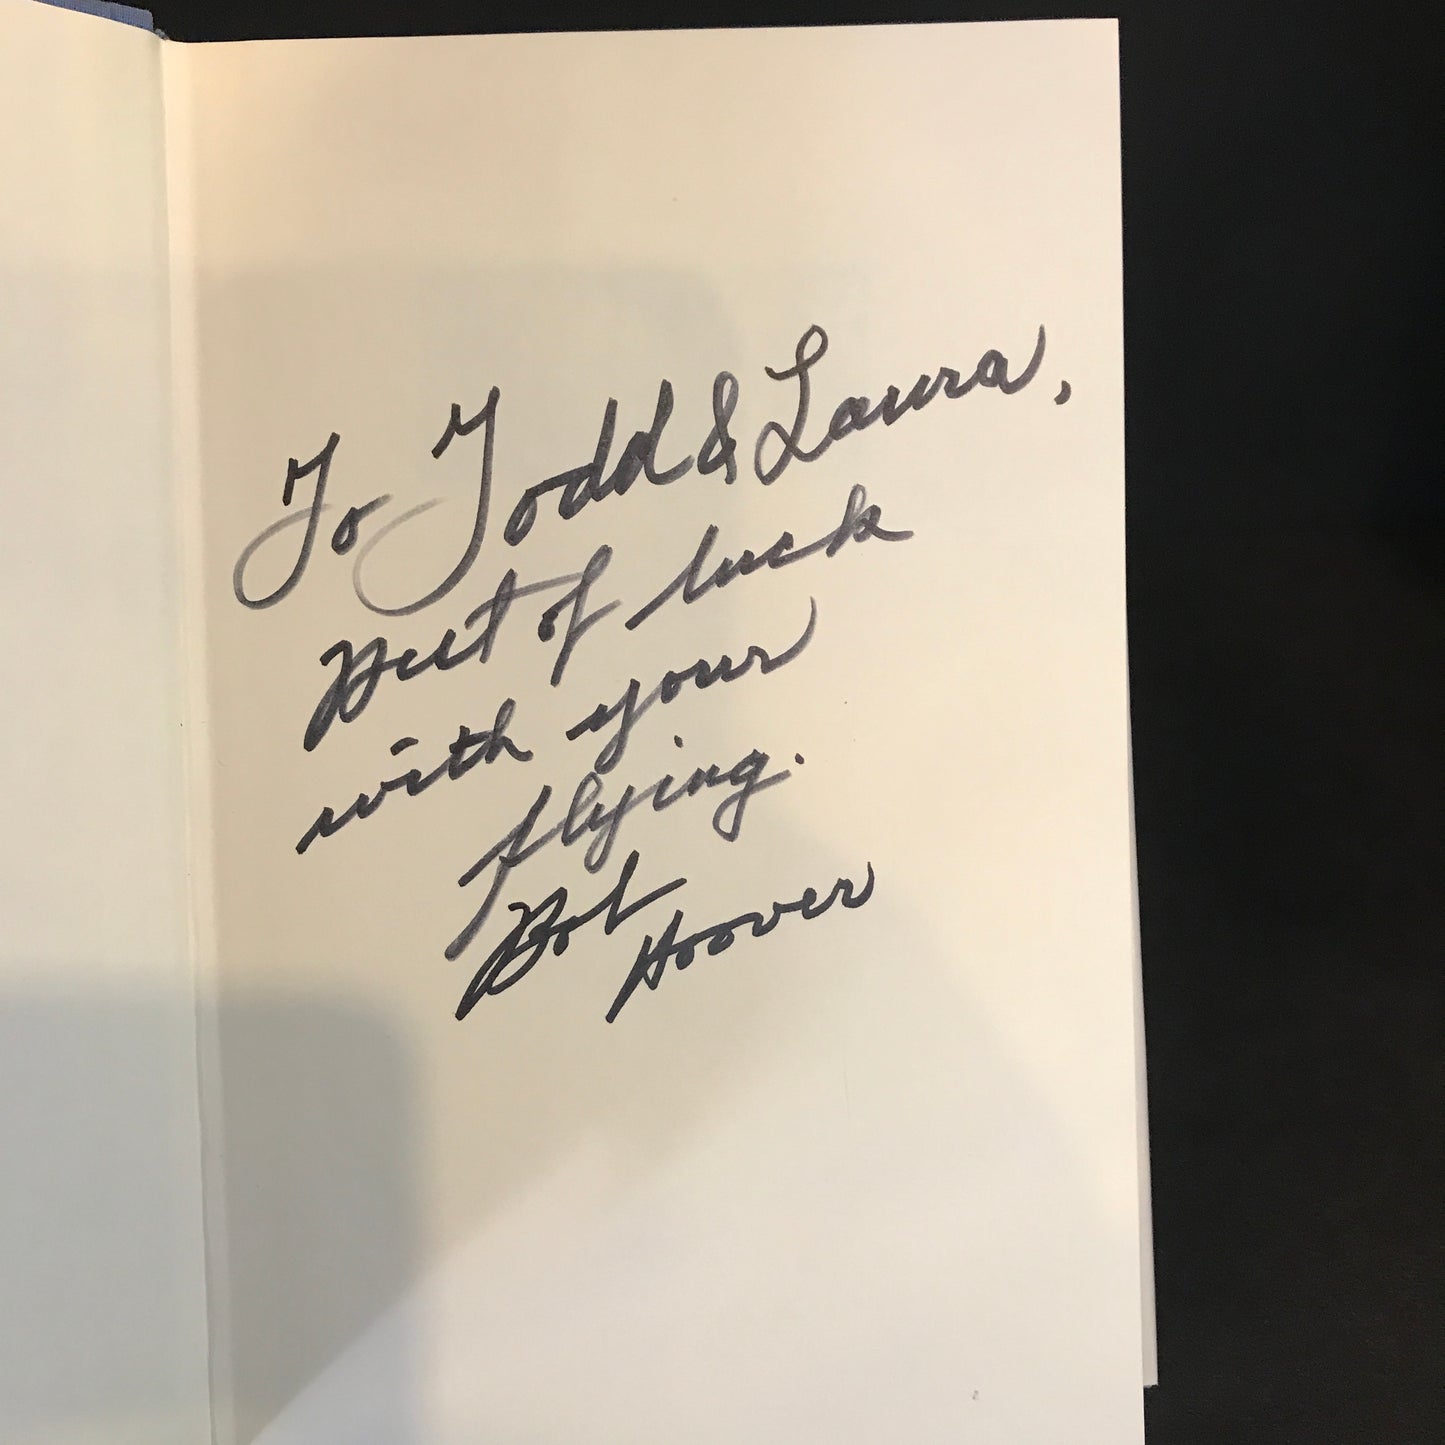 To Todd & Laura,
Best of luck
with your
flying.
Bob
Hoover